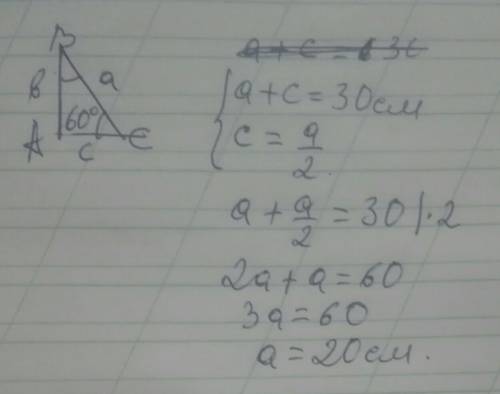 B
в a
60°
A c C
a + c = 30 см
c = a/2
a + a/2 = 30 |·2
2a + a = 60
3a = 60
a = 20 см.